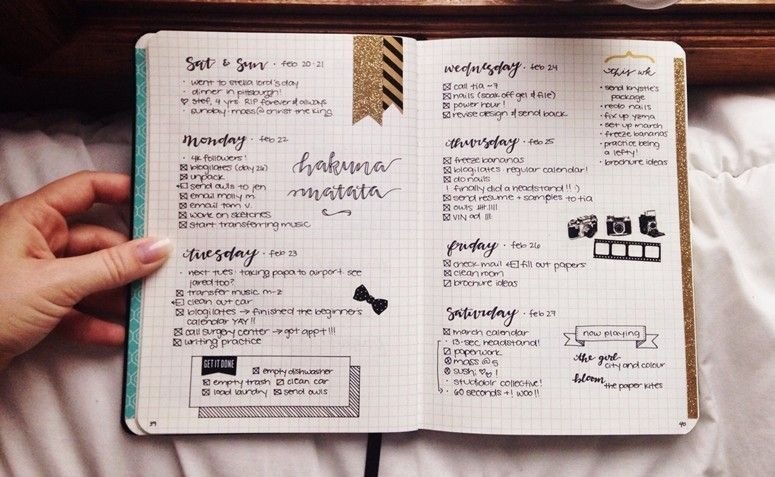 Sat & Sun · feb 20-21
· went to stella lord's day
· dinner in pittsburgh!
♡ stef, 9 yrs. RIP forever & always
· sunday-mass @ christ the king
Monday · feb 22
· 4k followers!
blogilates (day 26)
unpack
send owls to jen
email molly m.
email tom v.
work on sketches
start transferring music
hakuna
matata
tuesday · feb 23
· next tues: taking papa to airport. see
jared too?
transfer music m-z
clean out car
blogilates → finished the beginners
calendar YAY!!
call surgery center → got appt!!!
writing practice
GET IT DONE
empty dishwasher
empty trash clean car
load laundry send owls
39
wednesday · feb 24
call tia ~7
nails (soak off gel & file)
power hour!
revise design & send back
thursday · feb 25
freeze bananas
blogilates: regular calendar!
do nails
! finally did a headstand!! :)
send resume + samples to tia
owls
VIN
friday · feb 26
check mail fill out papers
clean room
brochure ideas
Saturday · feb 27
march calendar
· 13-sec headstand!
paperwork
mass @ 5
sushi
· studiolor collective!
· 60 seconds +! woo!!
this wk
· send krystle's
package
· redo nails
· fix up yzma
· set up march
· freeze bananas
· practice being
a lefty!
· brochure ideas
now playing
the girl-
city and colour
bloom-
the paper kites
40